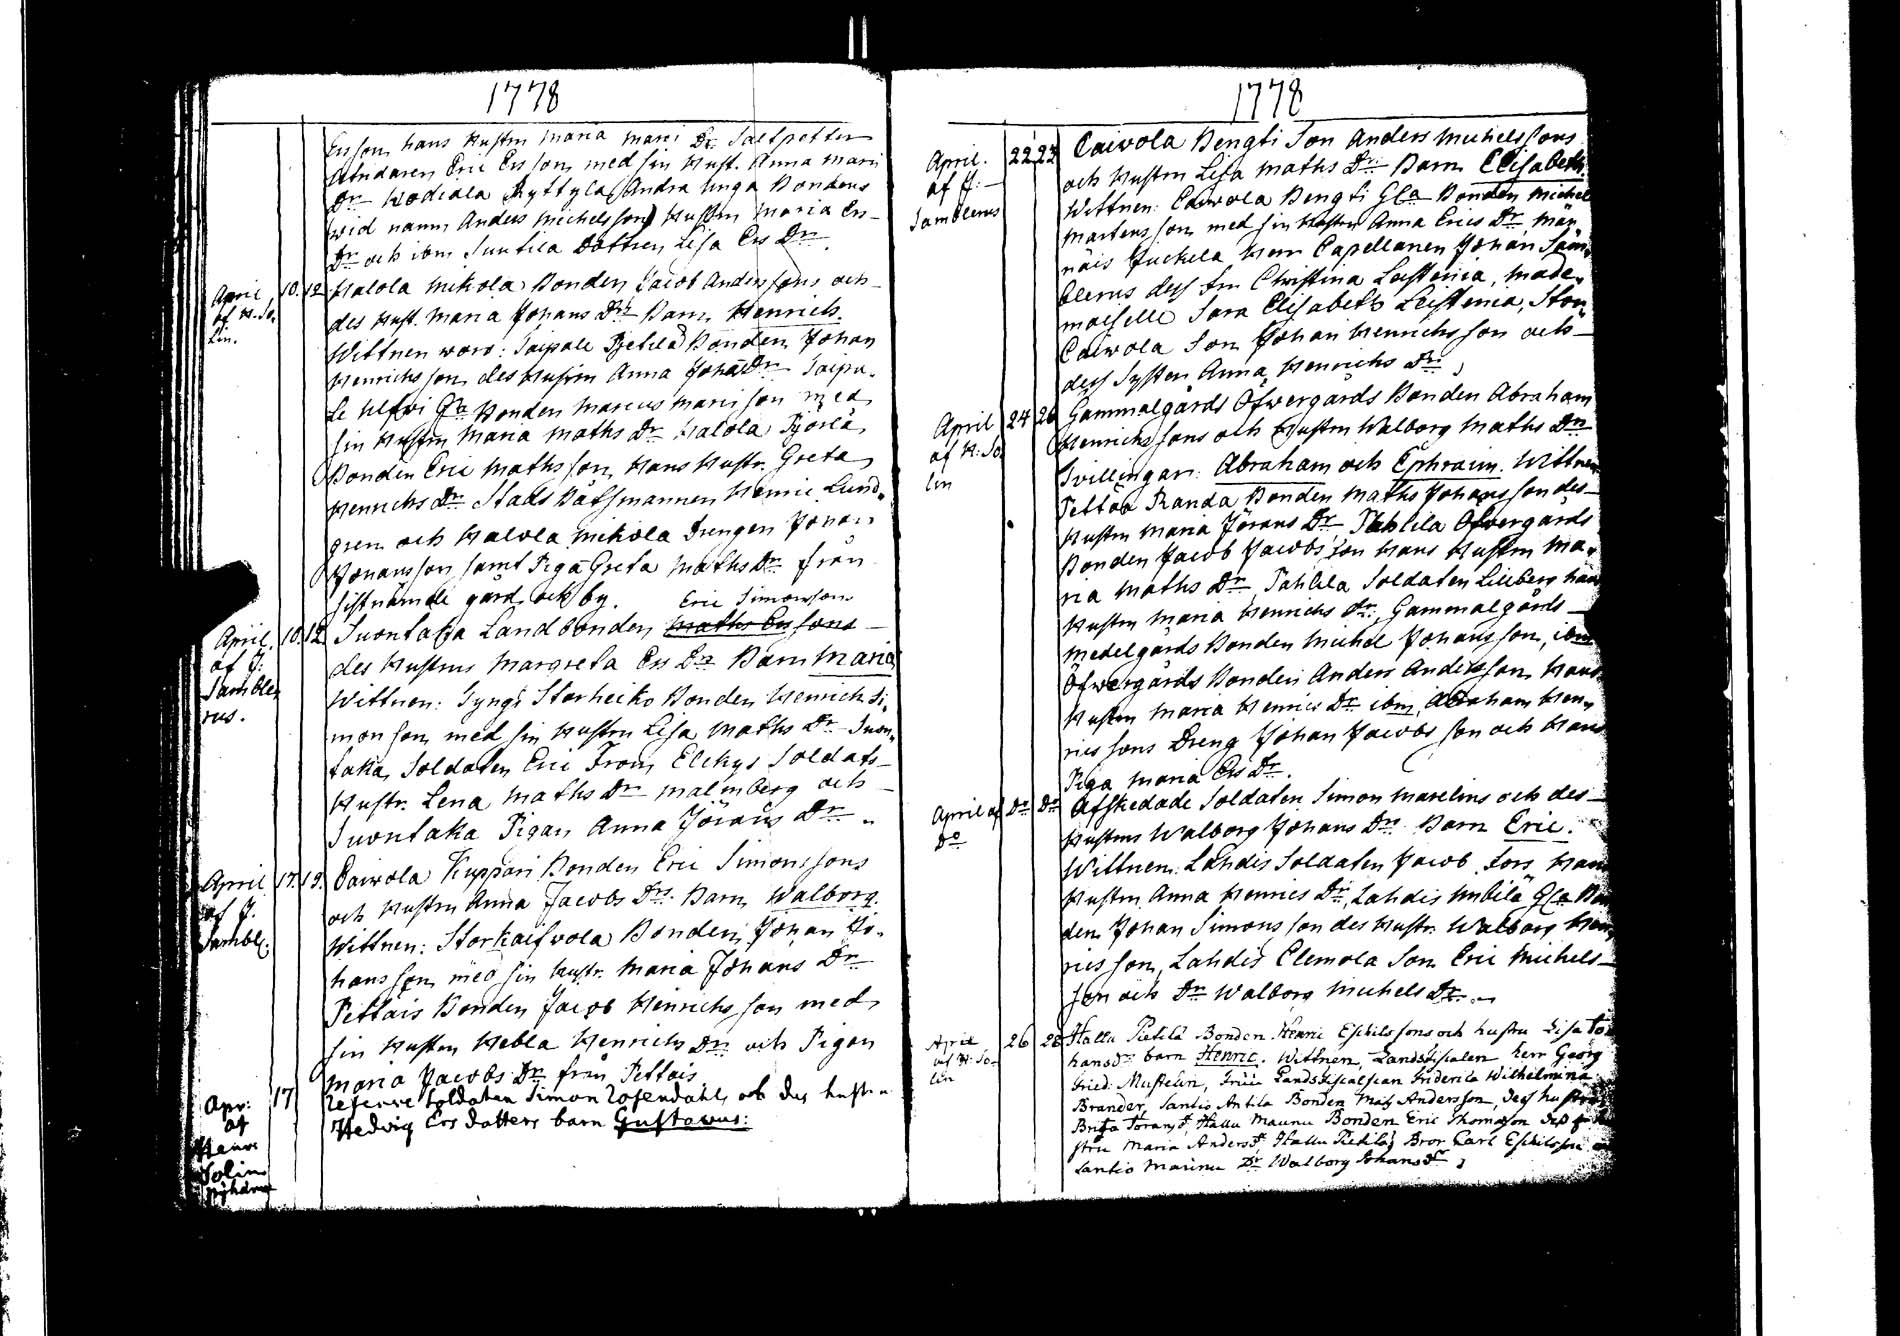 1778
Ersson hans hustru Maria Marci Dr Saltpetter
Siudaren Eric Ersson med sin hust. Anna Marci
Dr Kodiala Ryttyla Andra unga Bondens
wid namn Anders Michelsson hustru Maria Ers
Dr och ibm Suutila Dottren Lisa Ers Dr
April 10. 12 Halola Mikola Bonden Jacob Anderssons och
af H. So- des hust. Maria Johans Drs Barn Henrich.
lin. Wittnen woro: Saipale Pietilä Bonden Johan
Henrichsson des hustru Anna Johans Dr Saipa-
le Bonden Marcus Marcisson med
sin hustru Maria Maths Dr Halola Pyörlä
Bonden Eric Mathsson, hans hustr. Greta
Henrichs Dr Stads Båtsmannen Henric Lund-
gren och Halola Mikola Drengen Johan
Johansson samt Piga Greta Maths Dr från
sistnämde gård och by.
Eric Simonsson
April. 10. 12. Suontaka Landbonden Maths Erssons
af J: des hustrus Margreta Ers Dr Barn Maria
Samble- Wittnen: Syngs Storheiko Bonden Henrich Si-
rus. monsson med sin hustru Lisa Maths Dr Suon-
taka Soldaten Eric From, Elckys Soldats
hustr. Lena Maths Dr Malmberg och
Suontaka Pigan Anna Jörans Dr
April 17. 19. Caiwola Kuppari Bonden Eric Simonssons
af J. och hustru Anna Jacobs Drs Barn Walborg.
Sambl: Wittnen: Storkaifwola Bonden Johan Jo-
hansson med sin hustr. Maria Johans Dr
Pettäis Bonden Jacob Henrichsson med
sin hustru Hebla Henrichs Dr och Pigan
Maria Jacobs Dr från Pettäis
Apr: 17 Reserve Soldaten Simon Rosendahls och des hustru
af Hedvig Ers dotters barn Gustavus:
Henr
Solin
1778
April. 22 23 Caivola Bengti Son Anders Michelssons
af J: och hustru Lisa Maths Dr Barn Elisabeth.
Samblerus Wittnen: Caiwola Bengti Gla Bonden Michel
Martensson med sin hustru Anna Erics Dr Män-
näis Juckela Herr Capellanen Johan Sam-
blerus dess Fru Christina Leistenia, Made-
moiselle Sara Elisabeth Leistenia, Stor
Caiwola Son Johan Henrichsson och
dess Syster Anna Henrichs Dr
April 24 26 Gammalgårds Öfwergårds Bonden Abraham
af H: So- Henrichssons och hustru Walborg Maths Dr
lin Tvillingar: Abraham och Ephraim. Wittnen
Randa Bonden Maths Johansson des
hustru Maria Jörans Dr Pahlila Öfwergårds
Bonden Jacob Jacobsson hans hustru Ma-
ria Maths Dr Pahlila Soldaten Lilleberg hans
hustru Maria Henrichs Dr, Gammalgårds
Medelgårds Bonden Michel Johansson, ibm
Öfwergårds Bonden Anders Andersson hans
hustru Maria Henrics Dr ibm, Abraham Hen-
ricssons Dreng Johan Jacobsson och hans
Piga Maria Ers Dr.
April af Do Do Afskedade Soldaten Simon Marelius och des
Do hustrus Walborg Johans Dr Barn Eric.
Wittnen: Lahdis Soldaten Jacob Fors hans
hustru Anna Henrics Dr, Lahdis Gla Bon
den Johan Simonsson des hustr. Walborg Hen-
ricsson, Lahdis Elemola Son Eric Michels-
son och Dr Walborg Michels Dr.
April 26 28 Hallu Pietilä Bonden Henric Eskilssons och hustru Lisa Jo
af H: So- hansdr barn Henric. Wittnen, Landsfiscalen herr Georg
lin Fried: Mustelin, Fruu Landsfiscalskan Friderica Wilhelmina
Brander, Santio Antila Bonden Mats Andersson, dess hustru
Brita Joransdr, Hallu Maunu Bonden Eric Thomasson dess hu-
stru Maria Andersdr Hallu Pietilä Bror Carl Eskilsson o
Santio Maunu Dr Walborg Johansdr